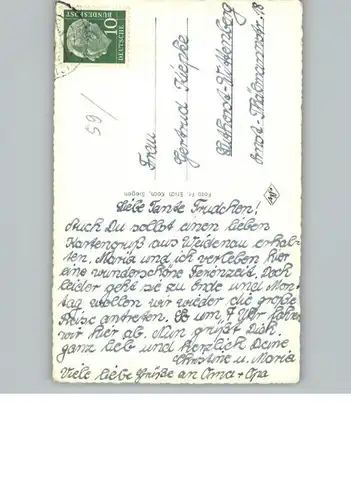 10
DEUTSCHE
BUNDESPOST
59/
Frau
Gertrud Kiepke
Lutherst.-Wittenberg
Ernst-Thälmannstr. 18
Foto Fr. Erich Koch, Siegen
Liebe Tante Trudchen!
Auch Du sollst einen lieben
Kartengruß aus Weidenau erhal-
ten. Maria und ich verleben hier
eine wunderschöne Ferienzeit. Doch
leider geht sie zu Ende und Mon-
tag wollen wir wieder die große
Reise antreten. So um 7 Uhr fahren
wir hier ab. Nun grüßt Dich
ganz lieb und herzlich Deine
Christine u. Maria
Viele liebe Grüße an Oma + Opa